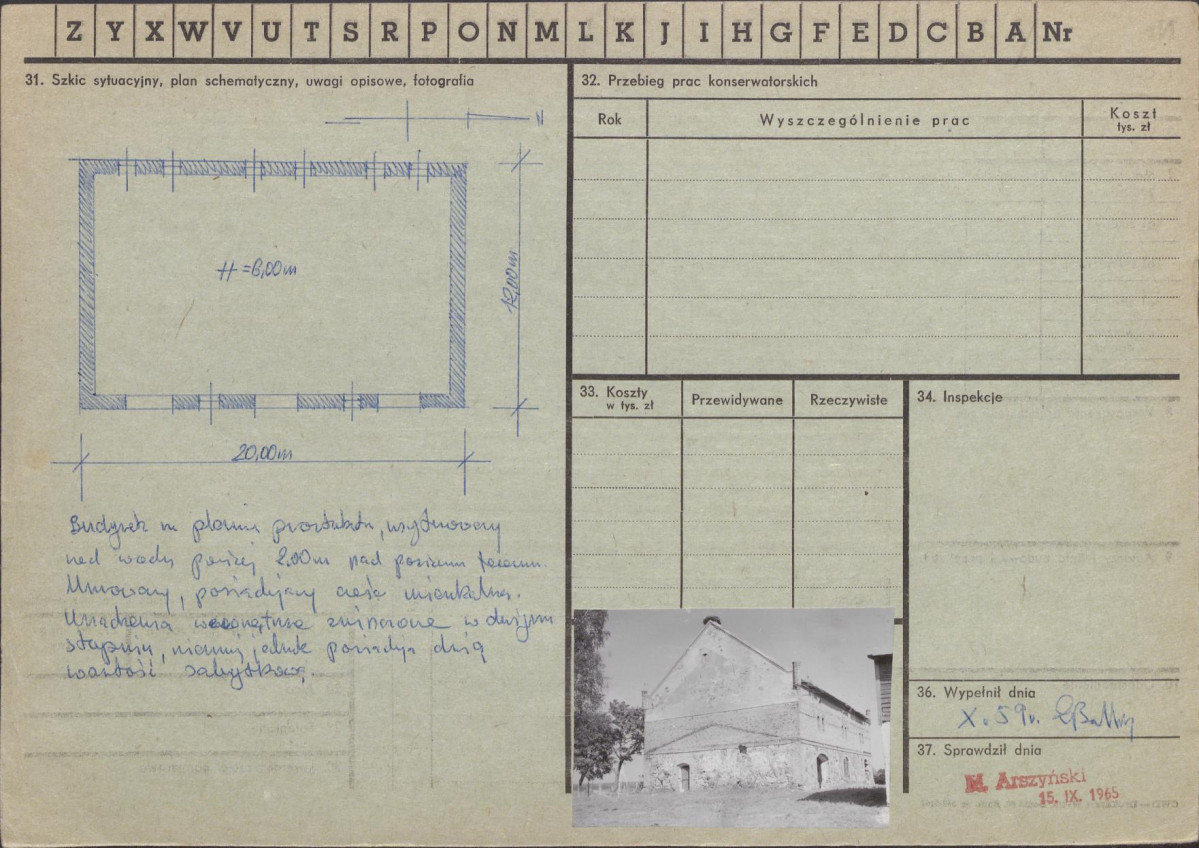 Z Y X W V U T S R P O N M L K J I H G F E D C B A Nr
31. Szkic sytuacyjny, plan schematyczny, uwagi opisowe, fotografia
N
H = 6,00m
12,00m
20,00m
Budynek na planie prostokąta, usytuowany
nad wodą poniżej 2.00m nad poziom terenu.
Murowany, posiadający część mieszkalną.
Urządzenia wewnątrz zniszczone w dużym
stopniu, niemniej jednak posiada dużą
wartość zabytkową.
32. Przebieg prac konserwatorskich
Rok
Wyszczególnienie prac
Koszt
tys. zł
33. Koszty
w tys. zł
Przewidywane
Rzeczywiste
34. Inspekcje
36. Wypełnił dnia
X. 59r.
37. Sprawdził dnia
M. Arszyński
15. IX. 1965